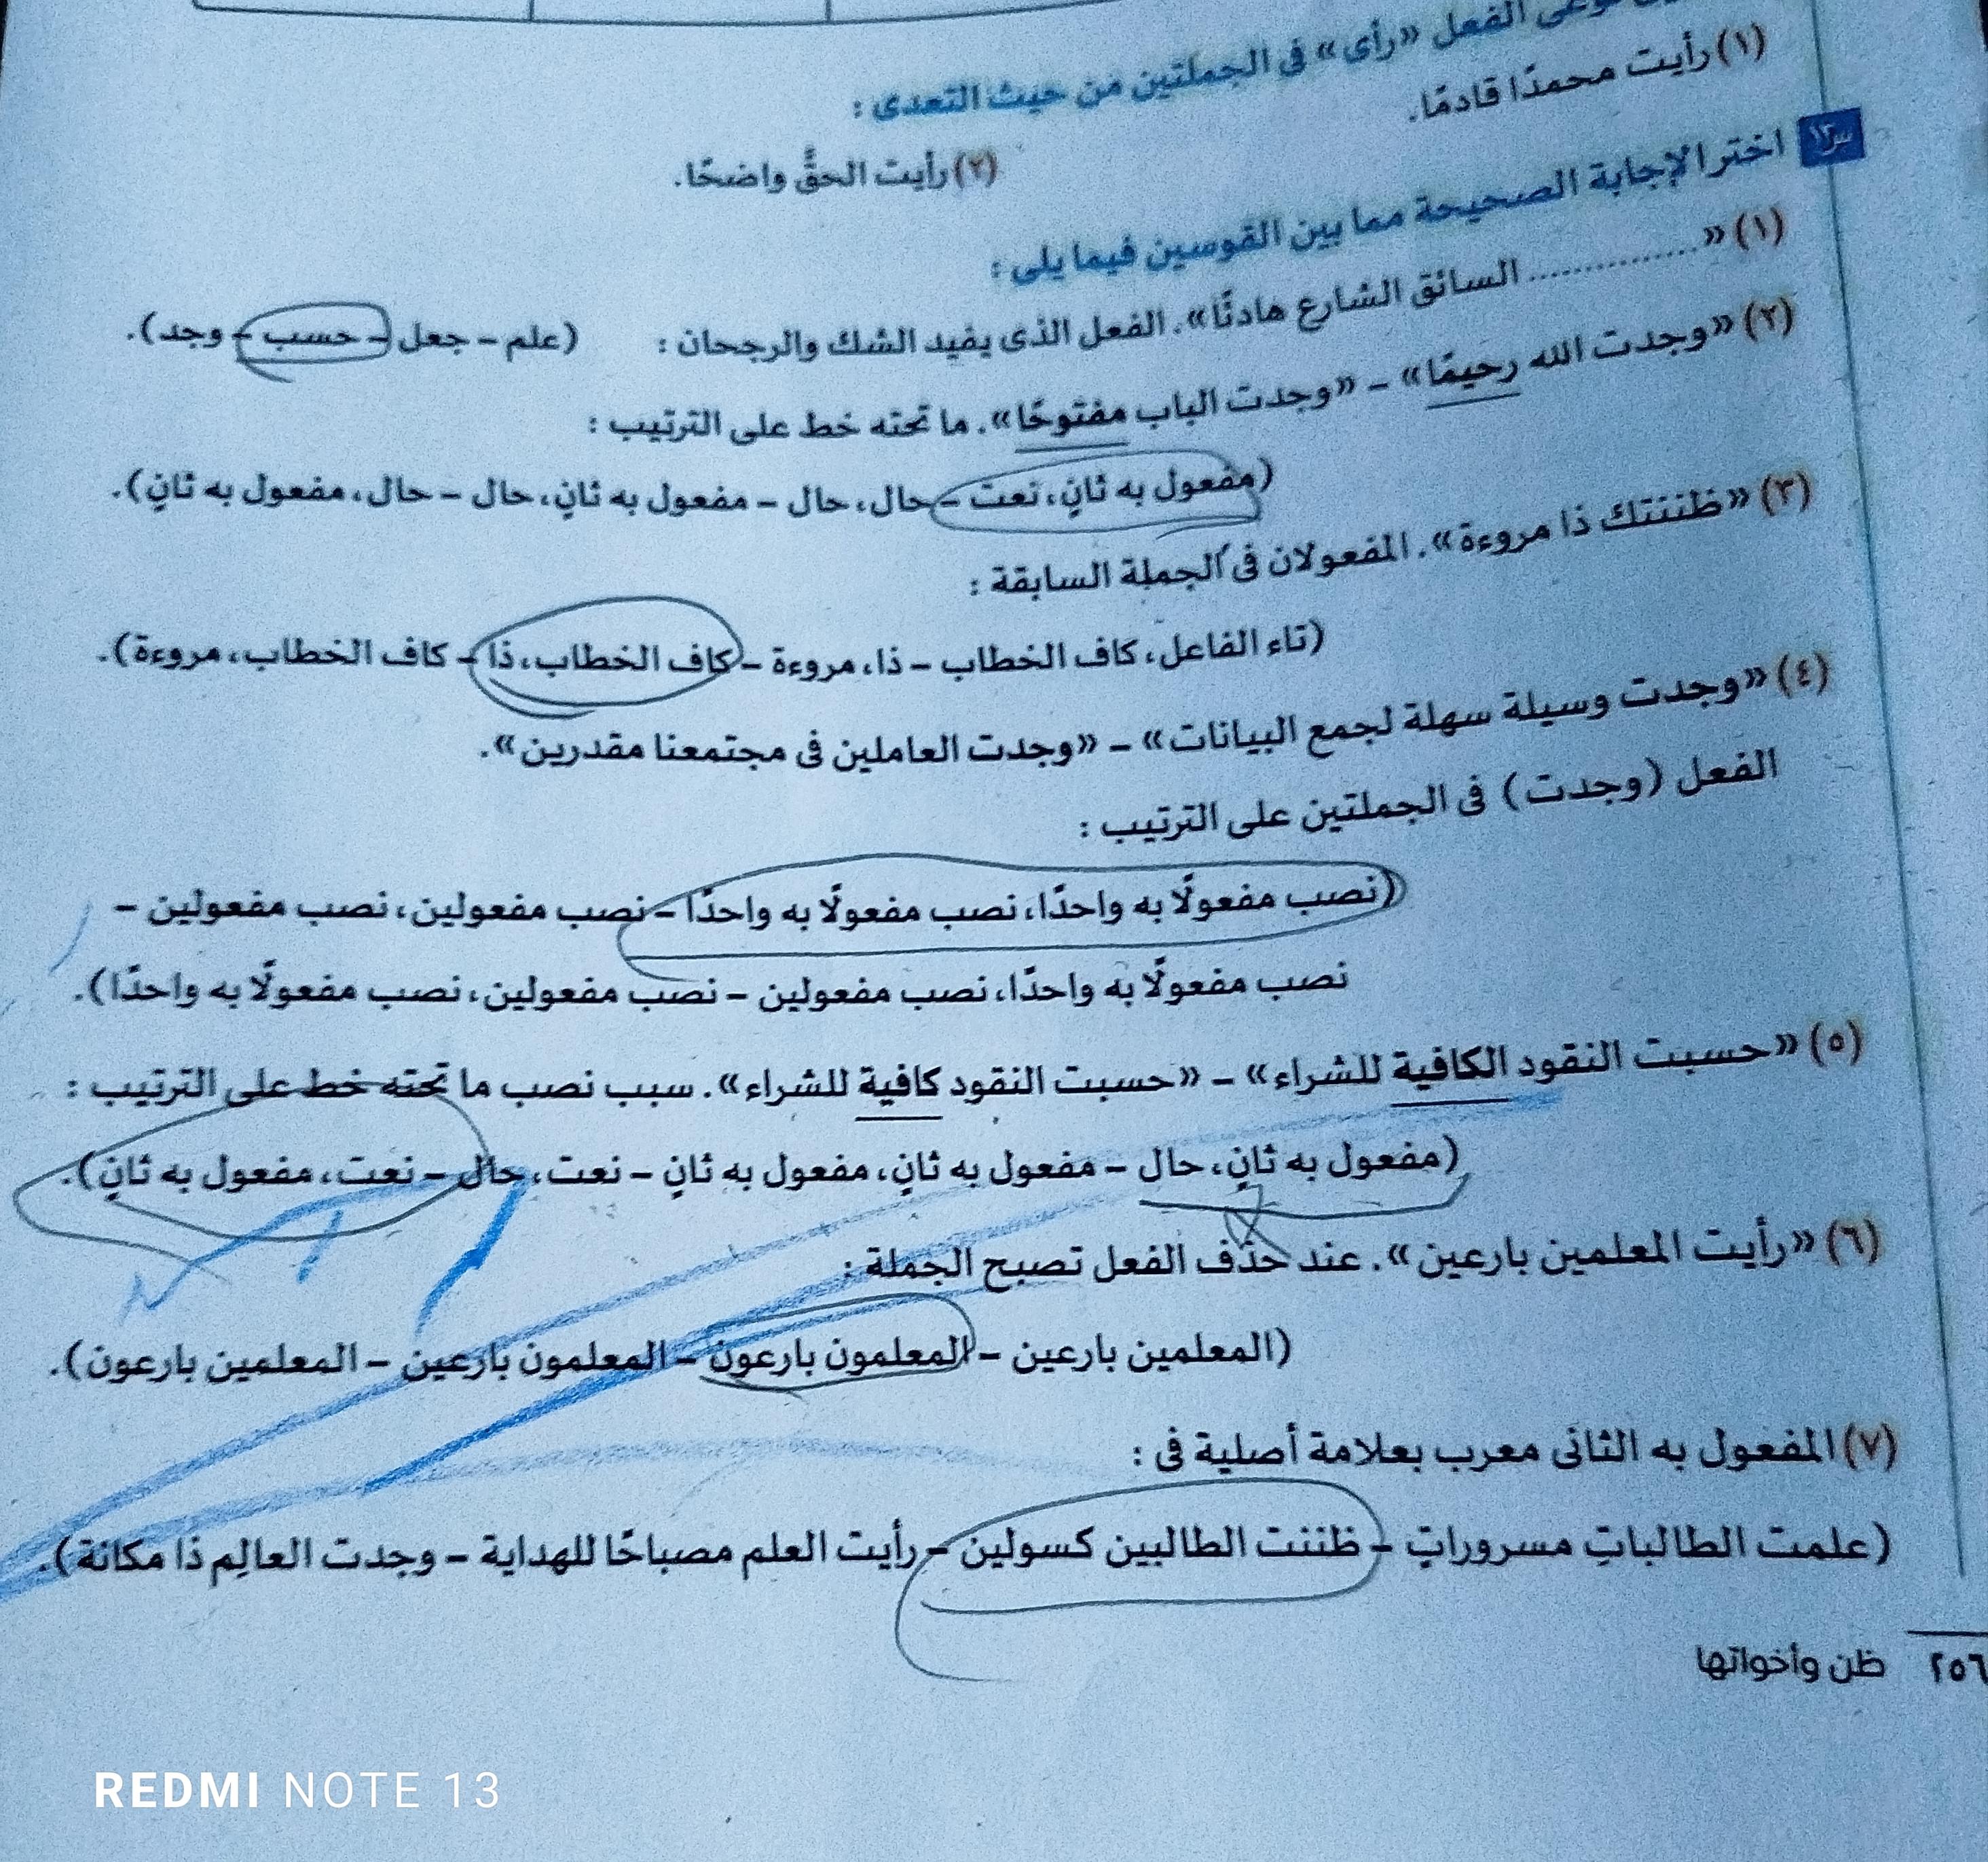 الفعل «رأى» فى الجملتين من حيث التعدى :
(١) رأيت محمدًا قادمًا.
(٢) رأيت الحقَّ واضحًا.
س١٢ اختر الإجابة الصحيحة مما بين القوسين فيما يلى :
(١) « .............. السائق الشارع هادئًا». الفعل الذى يفيد الشك والرجحان : (علم – جعل – حسب – وجد).
(٢) «وجدت الله رحيمًا» – «وجدت الباب مفتوحًا». ما تحته خط على الترتيب :
(مفعول به ثانٍ، نعت – حال، حال – مفعول به ثانٍ، حال – حال، مفعول به ثانٍ).
(٣) «ظننتك ذا مروءة». المفعولان فى الجملة السابقة :
(تاء الفاعل، كاف الخطاب – ذا، مروءة – كاف الخطاب، ذا – كاف الخطاب، مروءة).
(٤) «وجدت وسيلة سهلة لجمع البيانات» – «وجدت العاملين فى مجتمعنا مقدرين».
الفعل (وجدت) فى الجملتين على الترتيب :
(نصب مفعولًا به واحدًا، نصب مفعولًا به واحدًا – نصب مفعولين، نصب مفعولين –
نصب مفعولًا به واحدًا، نصب مفعولين – نصب مفعولين، نصب مفعولًا به واحدًا).
(٥) «حسبت النقود الكافية للشراء» – «حسبت النقود كافية للشراء». سبب نصب ما تحته خط على الترتيب :
(مفعول به ثانٍ، حال – مفعول به ثانٍ، مفعول به ثانٍ – نعت، حال – نعت، مفعول به ثانٍ).
(٦) «رأيت المعلمين بارعين». عند حذف الفعل تصبح الجملة :
(المعلمين بارعين – المعلمون بارعون – المعلمون بارعين – المعلمين بارعون).
(٧) المفعول به الثانى معرب بعلامة أصلية فى :
(علمت الطالباتِ مسروراتٍ – ظننت الطالبين كسولين – رأيت العلم مصباحًا للهداية – وجدت العالِم ذا مكانة).
٢٥٦ ظن وأخواتها
REDMI NOTE 13